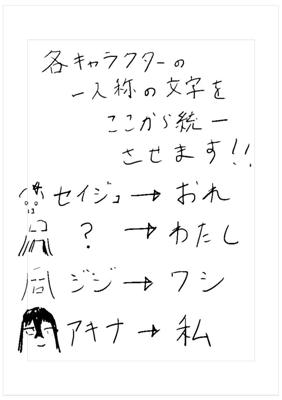 各キャラクターの
一人称の文字を
ここから統一
させます!!
セイジュ→おれ
?→わたし
ジジ→ワシ
アキナ→私